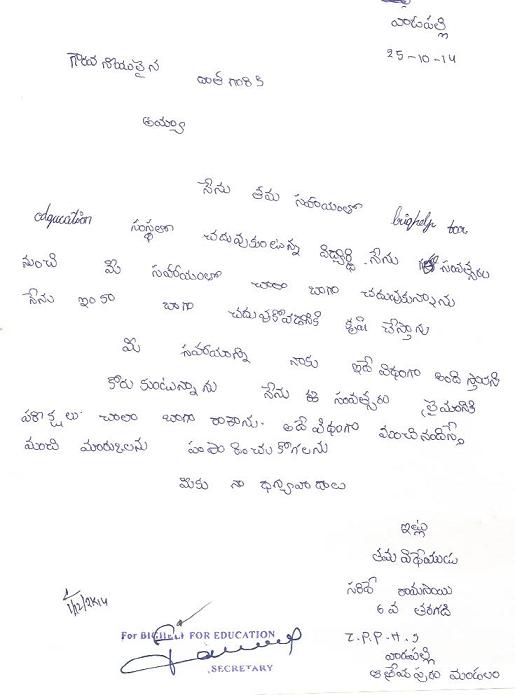 వాడపల్లి
25-10-14
గౌరవనీయులైన
దాత గారికి
అయ్యా
నేను తమ సహాయంతో bighelp for
edqucation సంస్థలో చదువుకుంటున్న విద్యార్థి. నేను సంవత్సరం
నుంచి మీ సహాయంతో చాలా బాగా చదువుకున్నాను
నేను ఇంకా బాగా చదువుకోవడానికి కృషి చేస్తాను
మీ సహాయాన్ని నాకు ఇదే విధంగా అందిస్తారని
కోరుకుంటున్నాను నేను ఈ సంవత్సరం త్రైమాసిక
పరీక్షలు చాలా బాగా రాశాను. అదే విధంగా
మంచి మార్కులను సంపాదించుకోగలను
మీకు నా ధన్యవాదాలు
ఇట్లు
తమ విధేయుడు
6 వ తరగతి
Z.P.P.H.S
వాడపల్లి
ఆత్రేయపురం మండలం
1/12/2K14
For BIGHELP FOR EDUCATION
SECRETARY